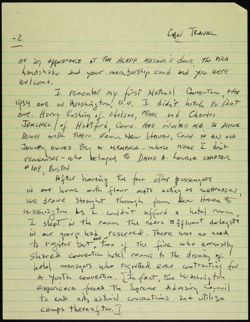 -2
GEN TRAVEL
or an appearance at the Aleph Mezuza's door, the AZA
handshake and your membership card and you were
welcome.
I remember my first National Convention, the
1934 one in Washington, D.C. I didn't hitch to that
one. Harry Cushing of Chelsea, Mass and Charles
of Hartford, Conn. had invited me to drive
down with them from New Haven, Conn. in an old
owned by a member - whose name I don't
remember - who belonged to
#104, Bristol
After having the four other passengers
in our home with floor mats acting as mattresses
we drove straight through from New Haven to
Washington. As I couldn't afford a hotel room,
I slept on the room the more affluent delegates
in our group had reserved. There was no need
to register but two of the five who normally
shared convention hotel rooms to the dismay of
hotel managers who regretted ever contracting for
a youth convention. In fact, the Washington
experience forced the Supreme Advisory Council
to end city national conventions and utilize
camps thereafter.